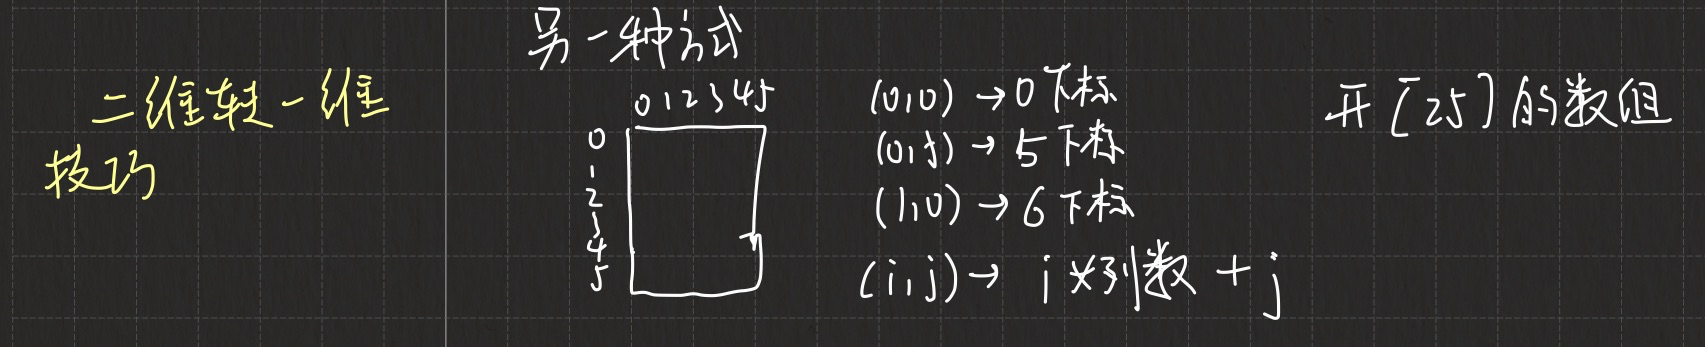 二维转一维
技巧
另一种方式
0 1 2 3 4 5
0
1
2
3
4
5
(0,0) → 0 下标
(0,5) → 5 下标
(1,0) → 6 下标
(i,j) → i * 列数 + j
开 [25] 的数组